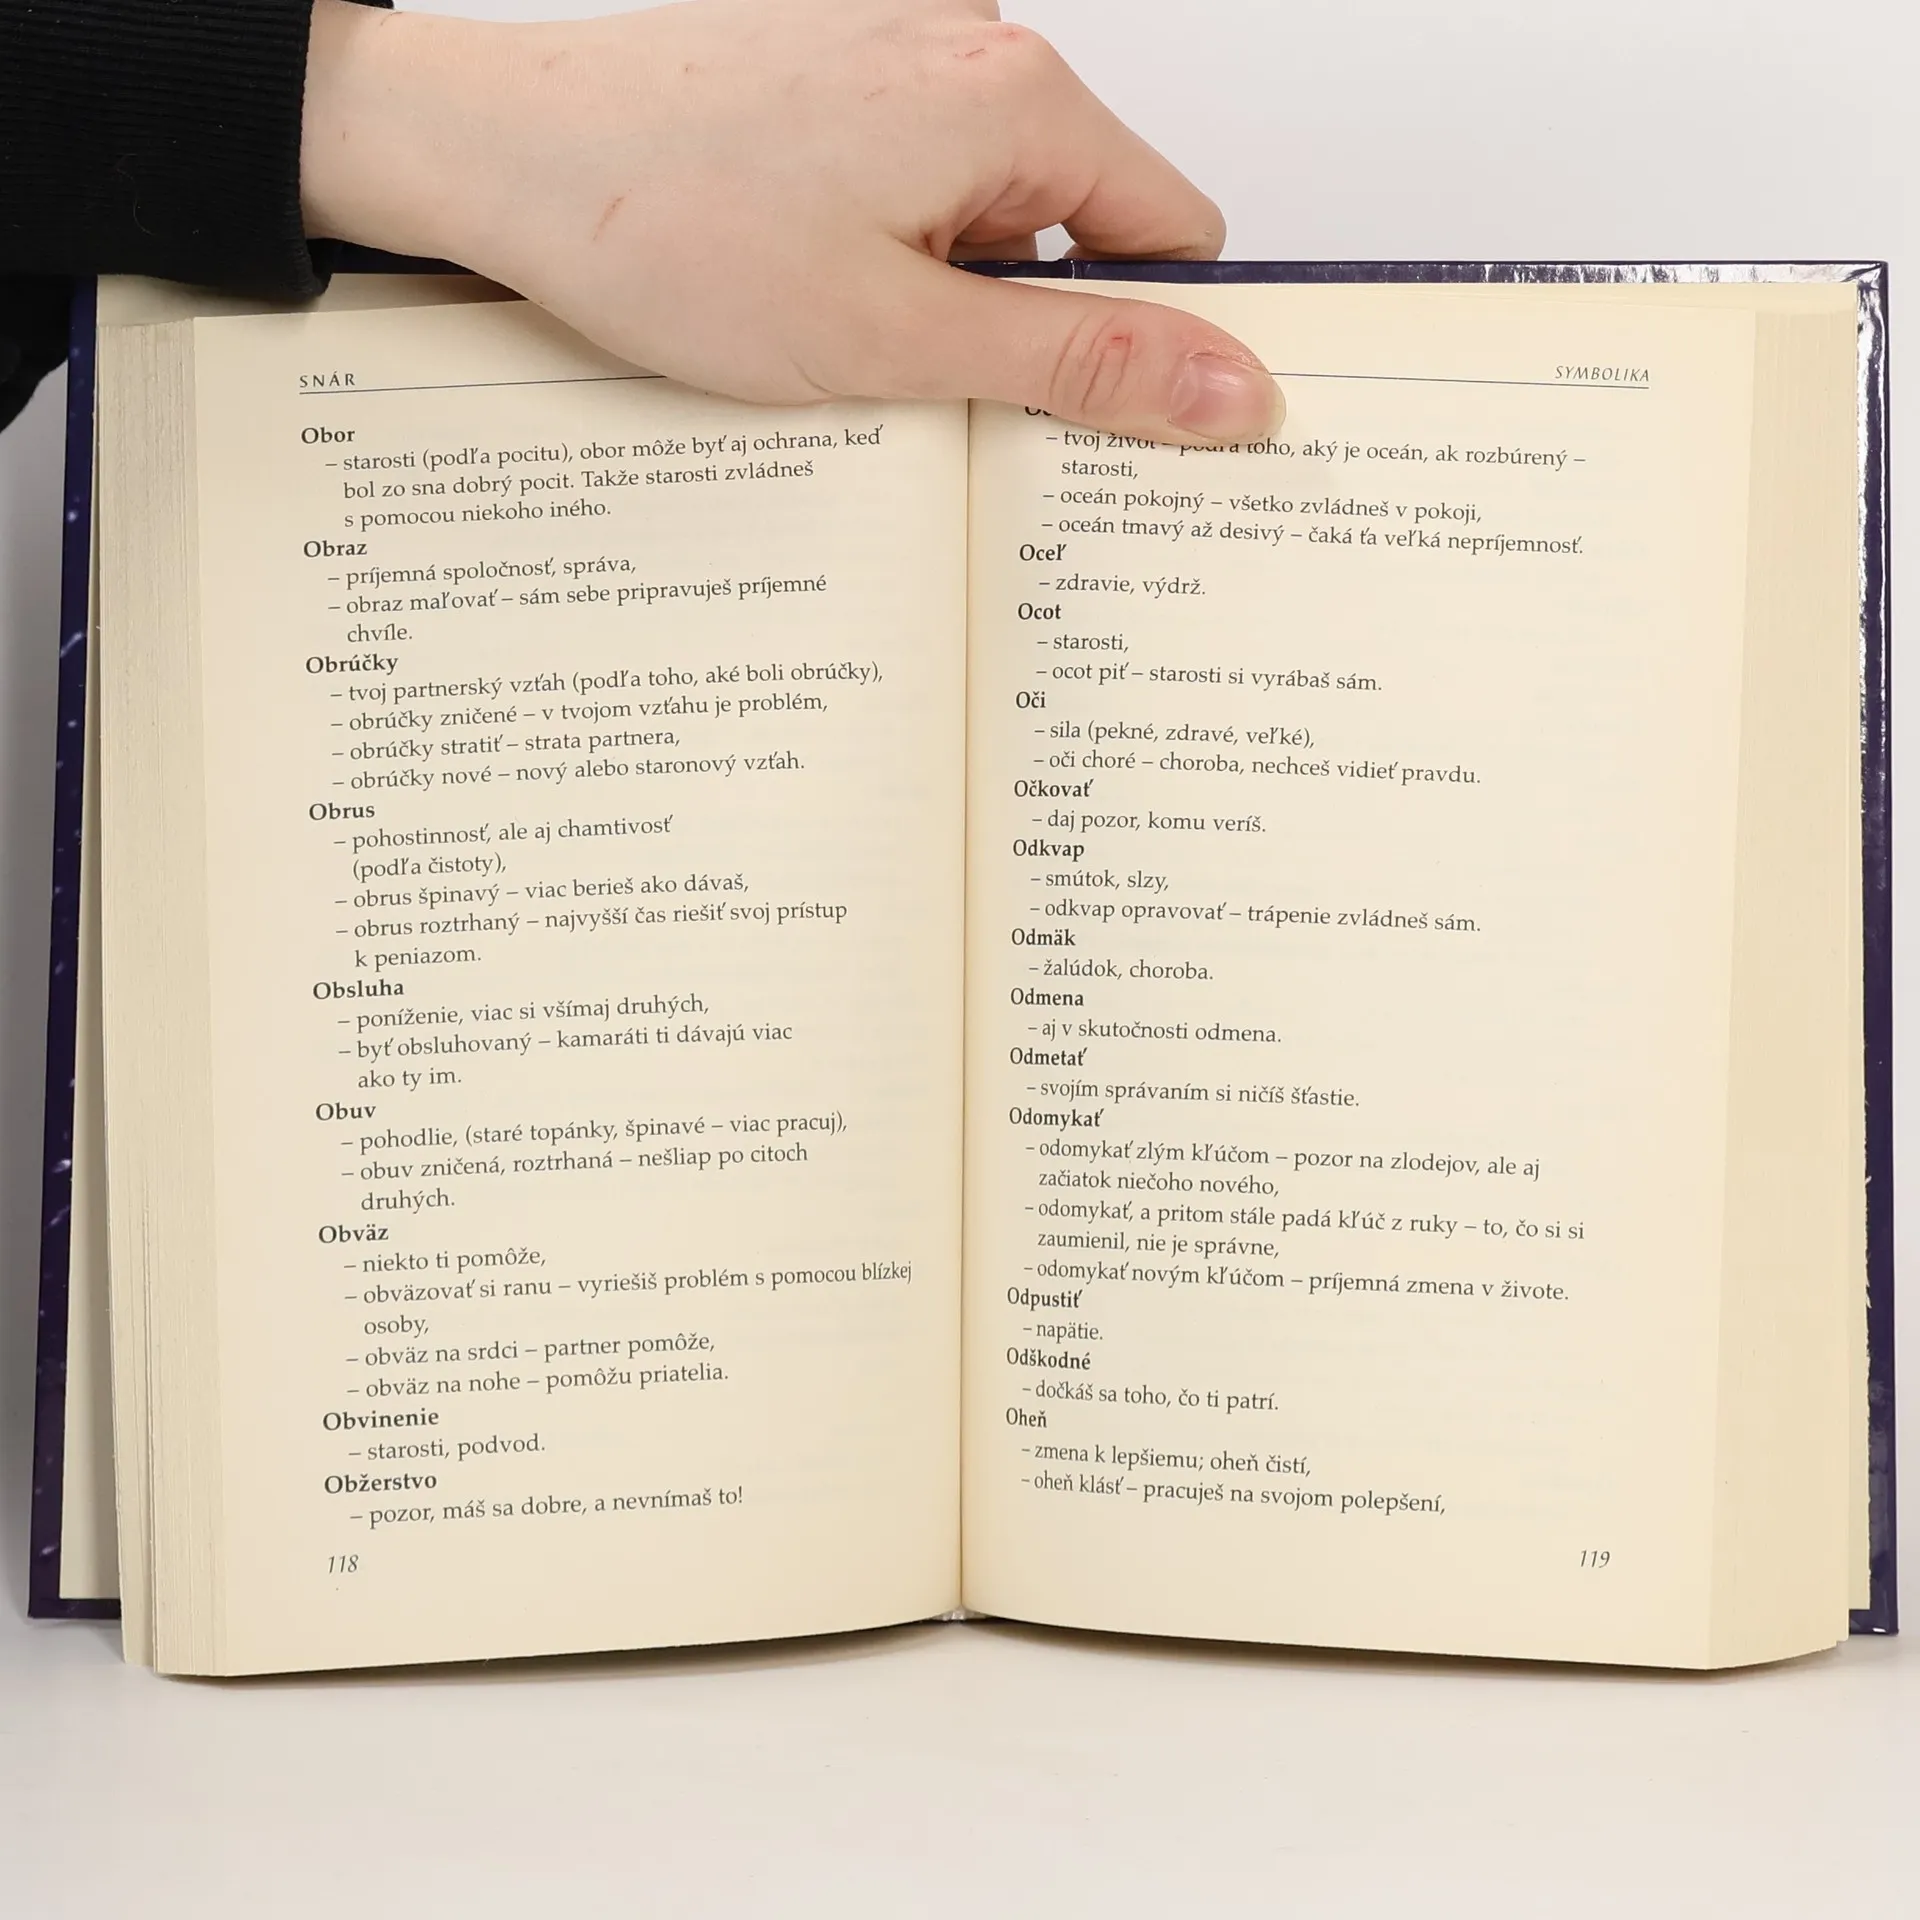 SNÁR
Obor
– starosti (podľa pocitu), obor môže byť aj ochrana, keď
bol zo sna dobrý pocit. Takže starosti zvládneš
s pomocou niekoho iného.
Obraz
– príjemná spoločnosť, správa,
– obraz maľovať – sám sebe pripravuješ príjemné
chvíle.
Obrúčky
– tvoj partnerský vzťah (podľa toho, aké boli obrúčky),
– obrúčky zničené – v tvojom vzťahu je problém,
– obrúčky stratiť – strata partnera,
– obrúčky nové – nový alebo staronový vzťah.
Obrus
– pohostinnosť, ale aj chamtivosť
(podľa čistoty),
– obrus špinavý – viac berieš ako dávaš,
– obrus roztrhaný – najvyšší čas riešiť svoj prístup
k peniazom.
Obsluha
– poníženie, viac si všímaj druhých,
– byť obsluhovaný – kamaráti ti dávajú viac
ako ty im.
Obuv
– pohodlie, (staré topánky, špinavé – viac pracuj),
– obuv zničená, roztrhaná – nešliap po citoch
druhých.
Obväz
– niekto ti pomôže,
– obväzovať si ranu – vyriešiš problém s pomocou blízkej
osoby,
– obväz na srdci – partner pomôže,
– obväz na nohe – pomôžu priatelia.
Obvinenie
– starosti, podvod.
Obžerstvo
– pozor, máš sa dobre, a nevnímaš to!
118
SYMBOLIKA
– tvoj život – podľa toho, aký je oceán, ak rozbúrený –
starosti,
– oceán pokojný – všetko zvládneš v pokoji,
– oceán tmavý až desivý – čaká ťa veľká nepríjemnosť.
Oceľ
– zdravie, výdrž.
Ocot
– starosti,
– ocot piť – starosti si vyrábaš sám.
Oči
– sila (pekné, zdravé, veľké),
– oči choré – choroba, nechceš vidieť pravdu.
Očkovať
– daj pozor, komu veríš.
Odkvap
– smútok, slzy,
– odkvap opravovať – trápenie zvládneš sám.
Odmäk
– žalúdok, choroba.
Odmena
– aj v skutočnosti odmena.
Odmetať
– svojím správaním si ničíš šťastie.
Odomykať
– odomykať zlým kľúčom – pozor na zlodejov, ale aj
začiatok niečoho nového,
– odomykať, a pritom stále padá kľúč z ruky – to, čo si si
zaumienil, nie je správne,
– odomykať novým kľúčom – príjemná zmena v živote.
Odpustiť
– napätie.
Odškodné
– dočkáš sa toho, čo ti patrí.
Oheň
– zmena k lepšiemu; oheň čistí,
– oheň klásť – pracuješ na svojom polepšení,
119